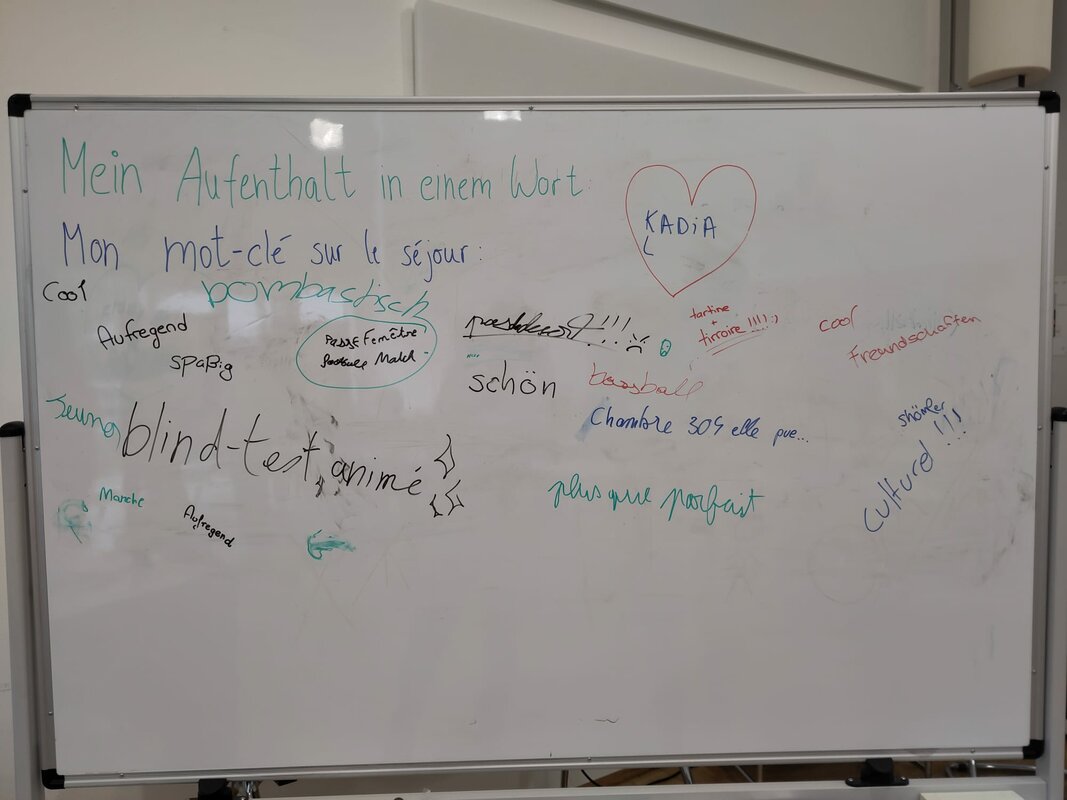 Mein Aufenthalt in einem Wort:
Mon mot-clé sur le séjour:
KADiA
L
Cool
bombastisch
Aufregend
spaßig
PASSE Fenêtre
Match
!!!
tartine
+
tirroire !!!! :)
cool
Freundschaften
schön
baseball
Chambre 304 elle pue...
blind-test animé
culturel !!!
plus que parfait
Marche
Aufregend